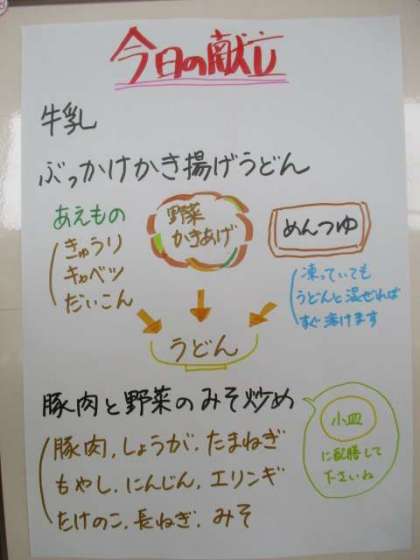 今日の献立
牛乳
ぶっかけかき揚げうどん
あえもの
きゅうり
キャベツ
だいこん
野菜
かきあげ
めんつゆ
凍っていても
うどんと混ぜれば
すぐ溶けます
うどん
豚肉と野菜のみそ炒め
豚肉.しょうが.たまねぎ
もやし.にんじん.エリンギ
たけのこ.長ねぎ.みそ
小皿
に配膳して
下さいね